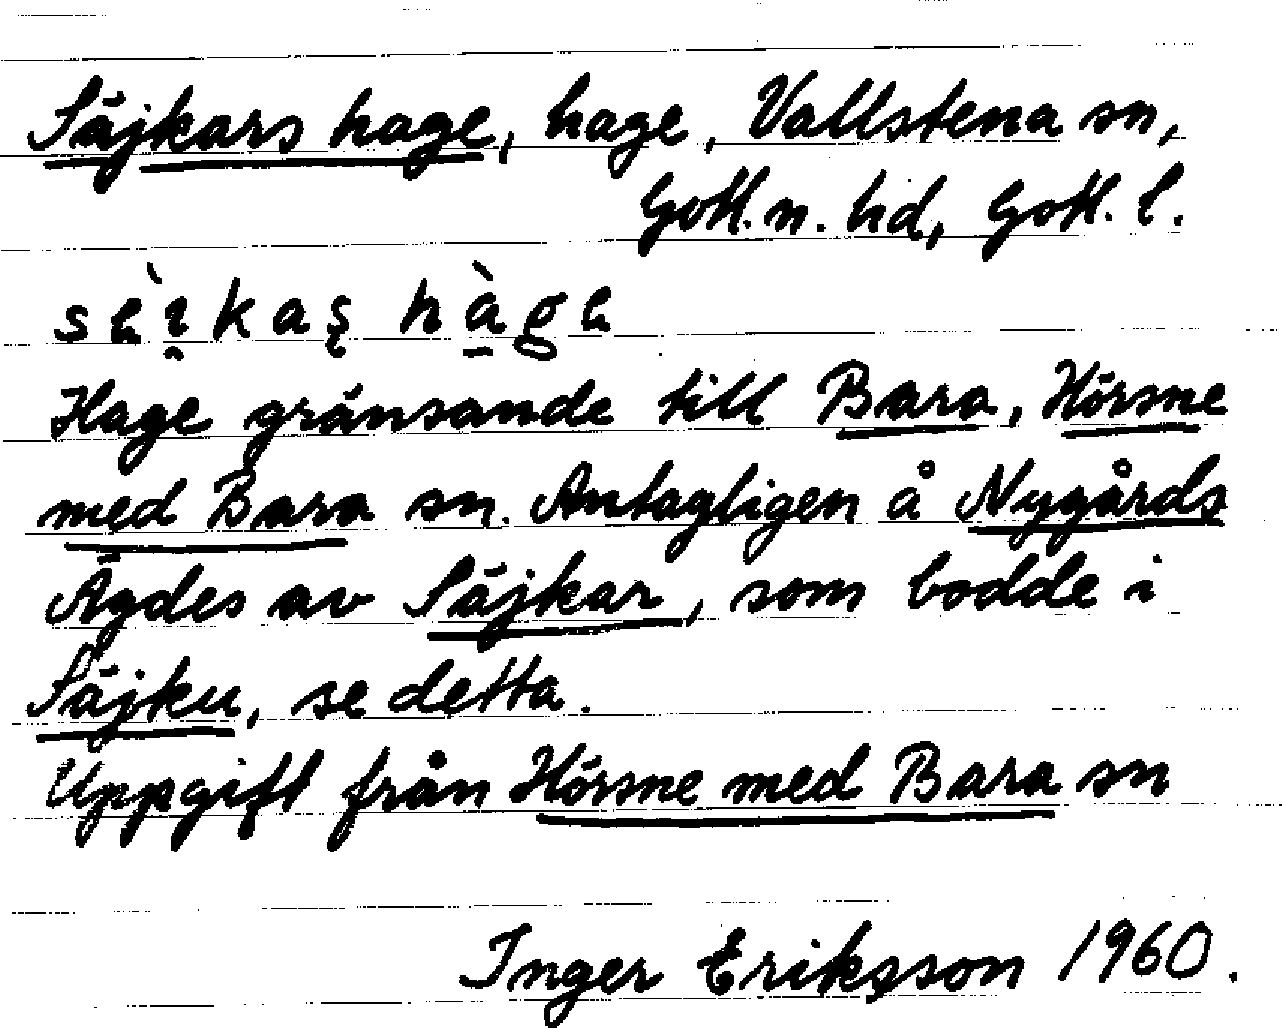 Säjkars hage, hage, Vallstena sn,
Gotl. n. hd, Gotl. l.
sèi̯kaş hàge
Hage gränsande till Bara, Hörsne
med Bara sn. Antagligen å Nygårds
Ägdes av Säjkar, som bodde i
Säjku, se detta.
Uppgift från Hörsne med Bara sn
Inger Eriksson 1960.